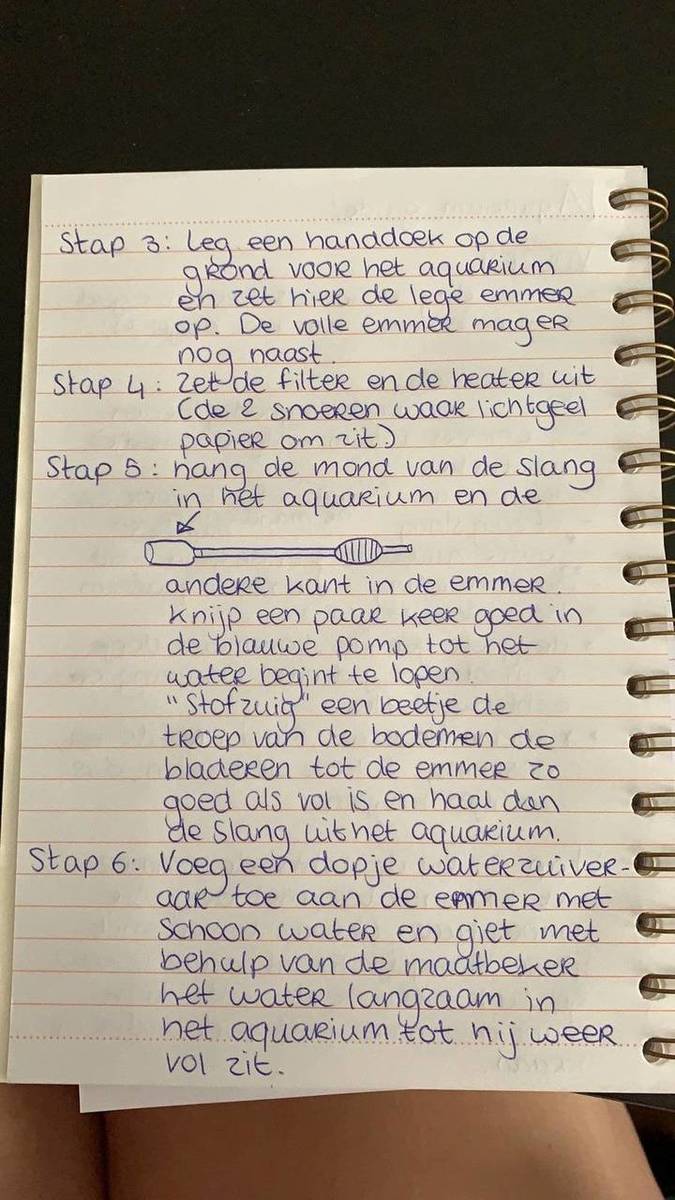 Stap 3: Leg een handdoek op de
grond voor het aquarium
en zet hier de lege emmer
op. De volle emmer mag er
nog naast.
Stap 4: Zet de filter en de heater uit
(de 2 snoeren waar lichtgeel
papier om zit.)
Stap 5: hang de mond van de slang
in het aquarium en de
andere kant in de emmer.
Knijp een paar keer goed in
de blauwe pomp tot het
water begint te lopen.
"Stofzuig" een beetje de
troep van de bodem en de
bladeren tot de emmer zo
goed als vol is en haal dan
de slang uit het aquarium.
Stap 6: Voeg een dopje waterzuiver-
aar toe aan de emmer met
schoon water en giet met
behulp van de maatbeker
het water langzaam in
het aquarium tot hij weer
vol zit.